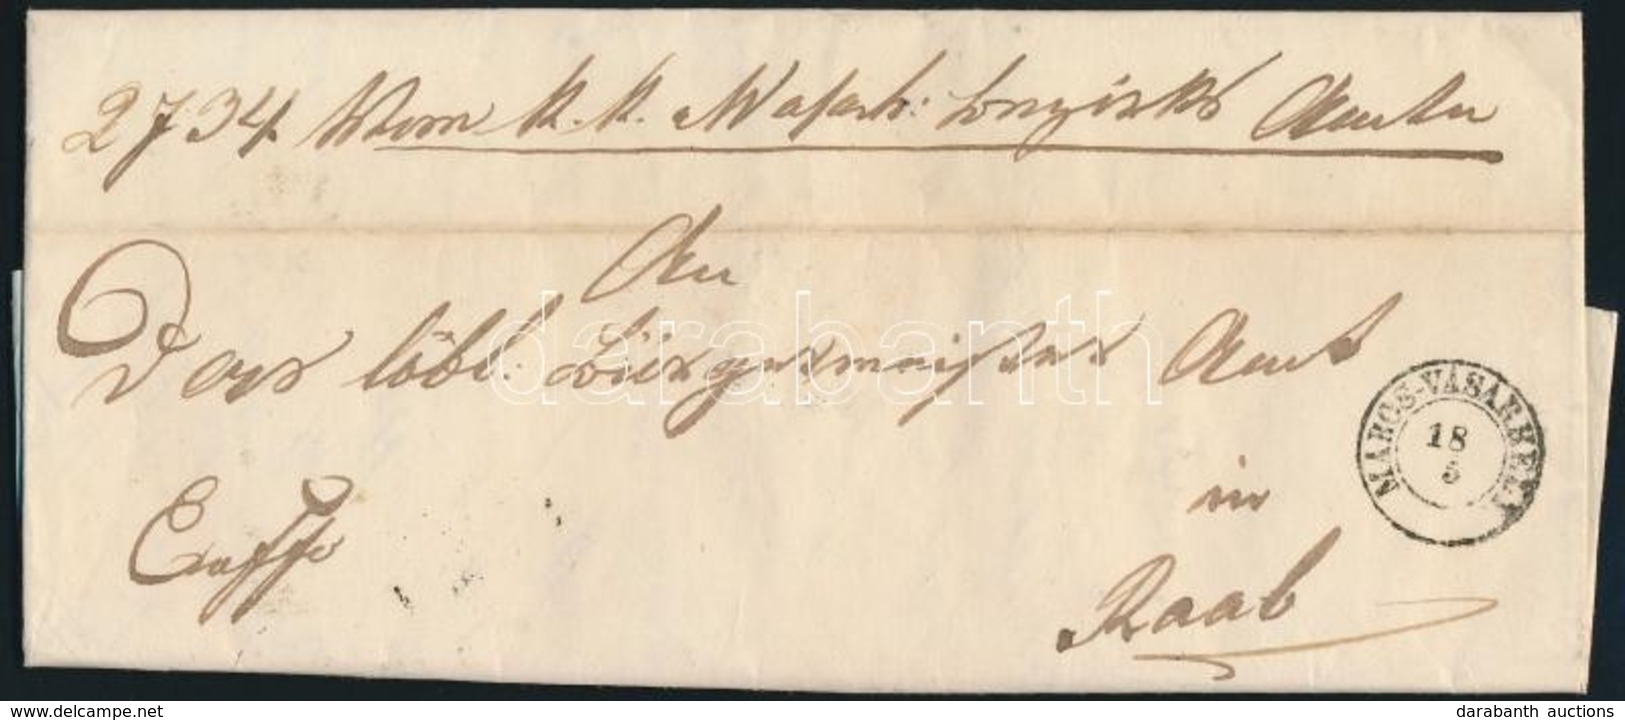 2734 Vom K. K. Vasarh: Bezirks Amte
An
Das löbl: Bürgermeister Amt
MAROS-VÁSÁRHELY
18
5
in
Raab
darabanth
www.delcampe.net
darabanth auctions